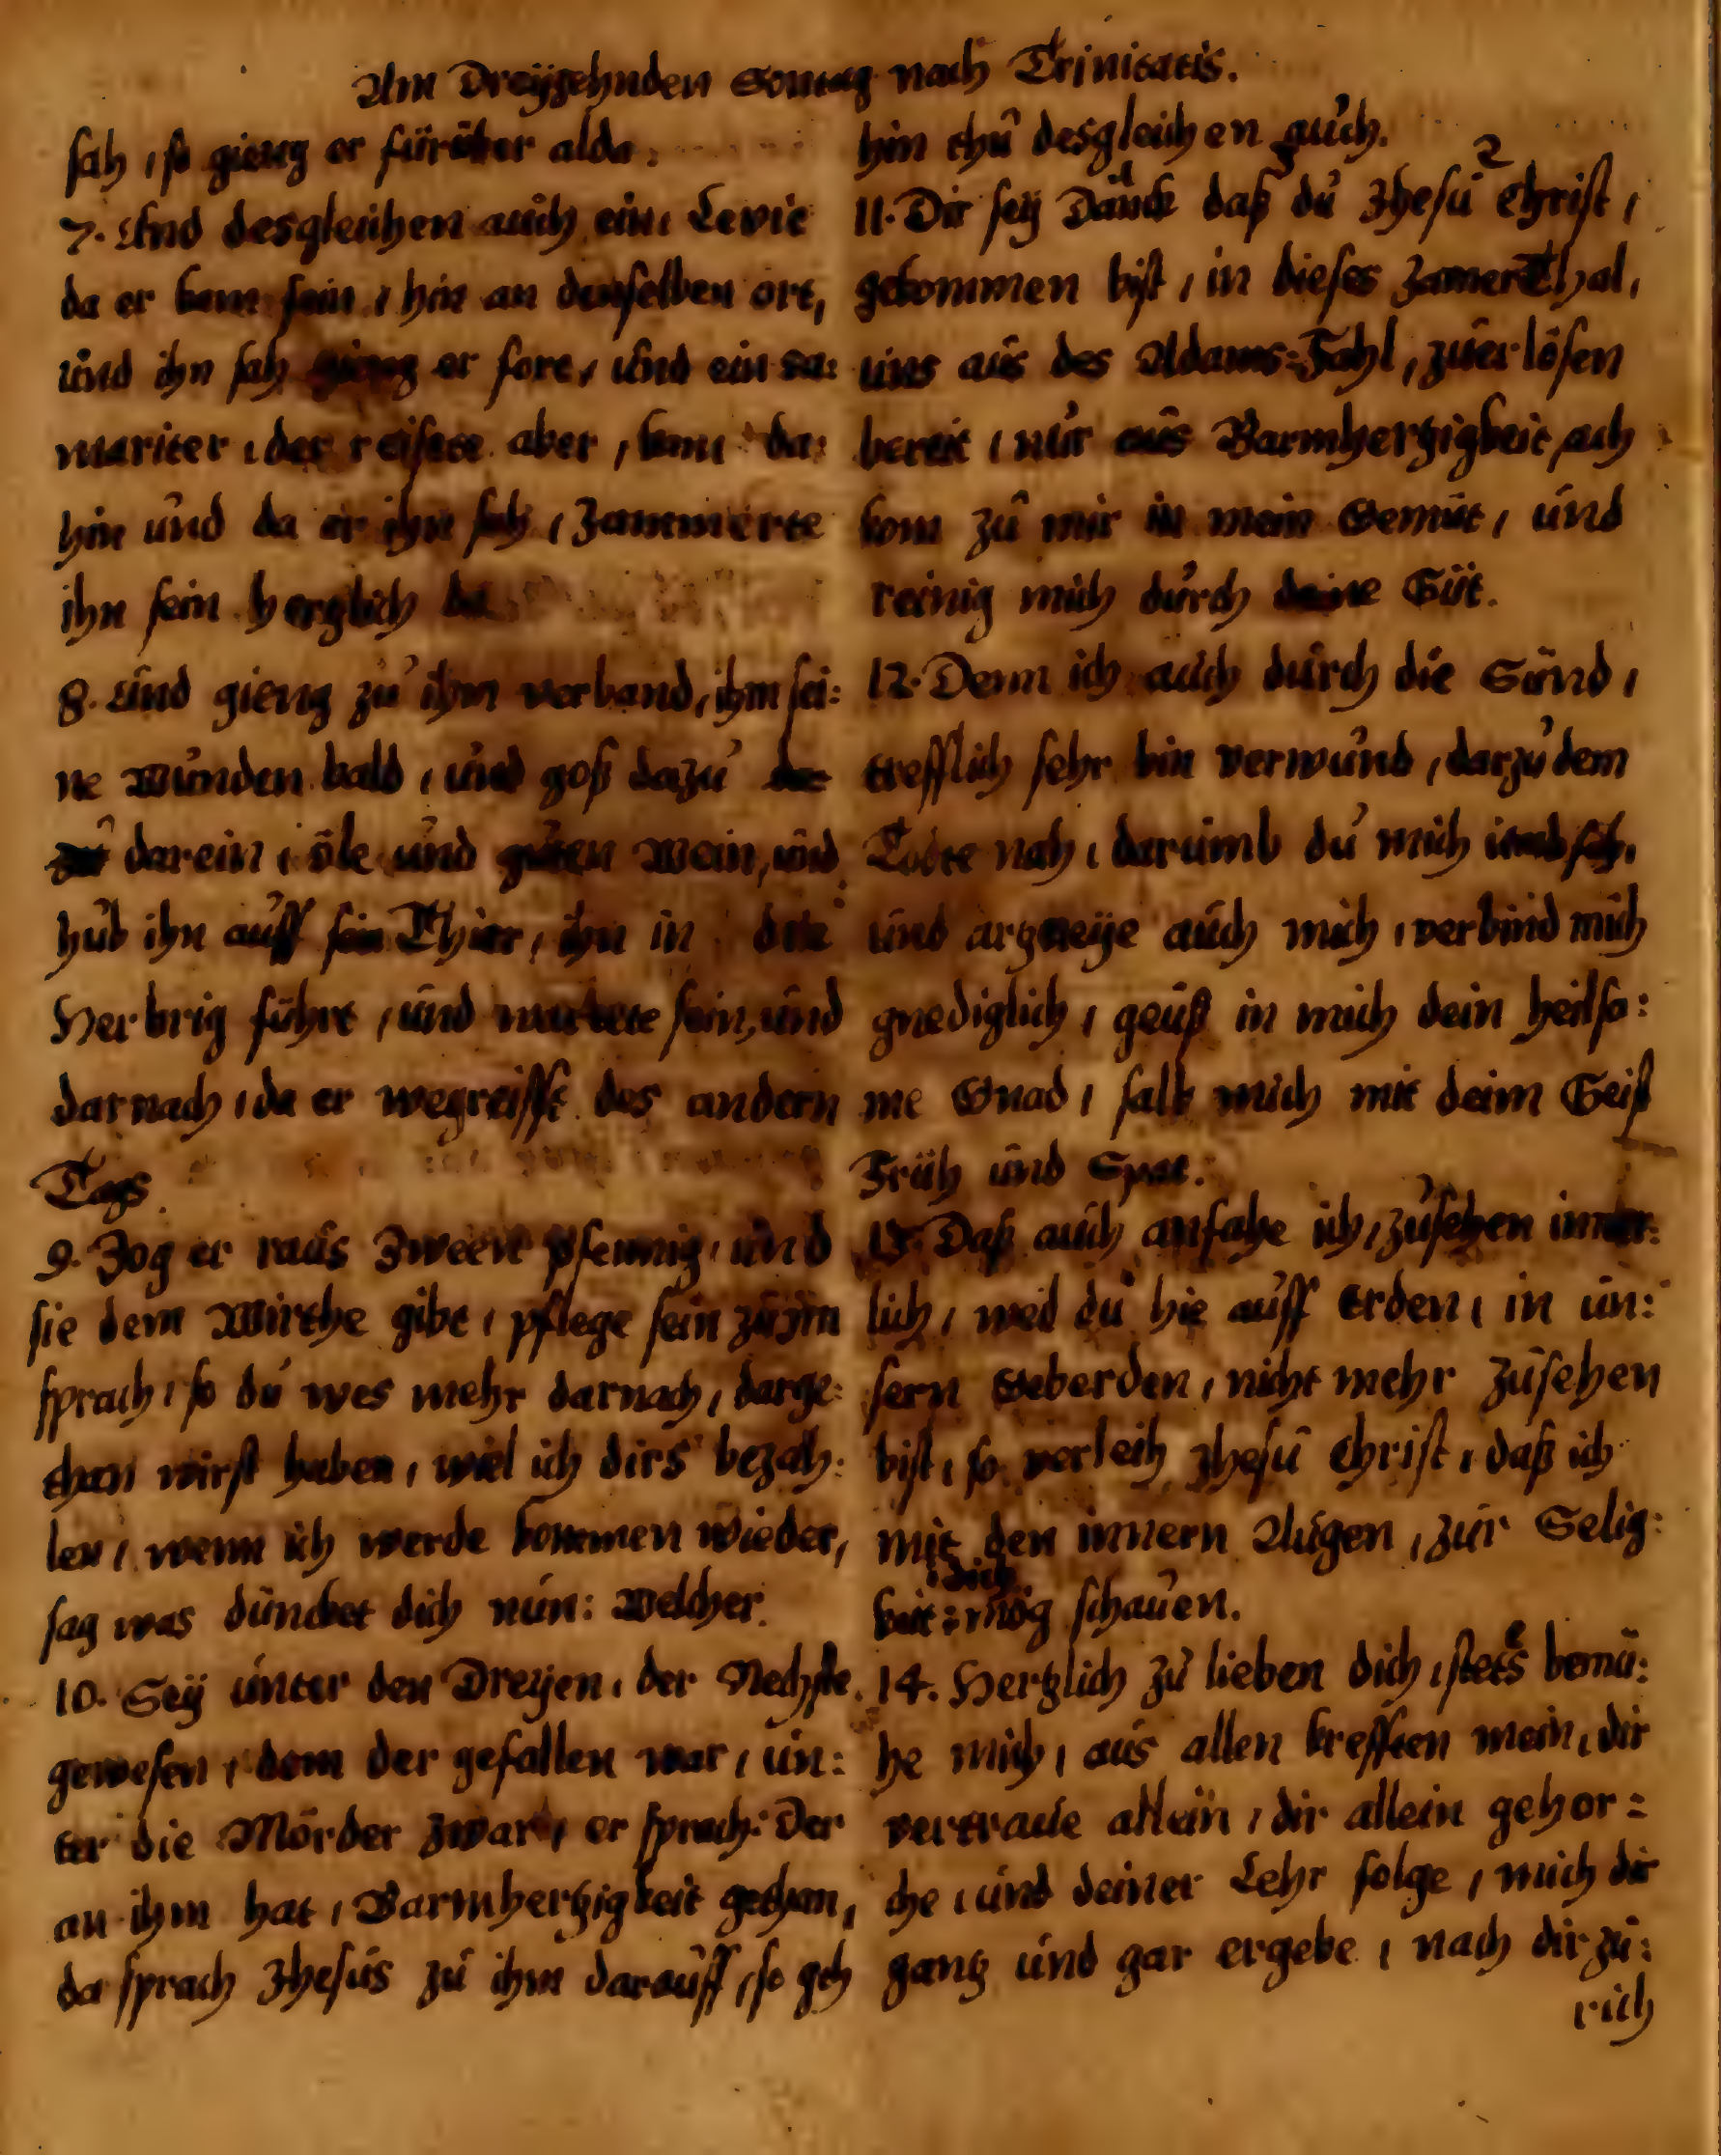 Am Dreyzehnden Sontag nach Trinitatis.
sah, so gieng er fürüber alda.
7. Und desgleichen auch ein, Levit
da er kam sein, hin an denselben ort,
und ihn sah gieng er fort, und ein Sa:
mariter, der reisete aber, kam da:
hin und da er ihn sah, Jammerte
ihn sein hertzlich da
8. Und gieng zu ihm verband, ihm sei:
ne Wunden bald, und goß dazu
darein, öle und guten Wein, und
hub ihn auff sein Thier, ihn in die
Herbrig führt, und wartete sein, und
darnach, da er wegreisst des andern
Tags.
9. Zog er raus Zween Pfennig, und
sie dem Wirthe gibt, pflege sein zu jm
sprach, so du wes mehr darnach, darge:
than wirst haben, wiel ich dirs bezah:
len, wenn ich werde kommen wieder,
sag was düncket dich nun: Welcher.
10. Sey unter den Dreyen, der Nechste.
gewesen, dem der gefallen war, un:
ter die Mörder zwar, er sprach: Der
an ihm hat, Barmhertzigkeit gethan,
da sprach Jhesus zu ihm darauff, so geh
hin thu desgleichen auch.
11. Dir sey Danck daß du Jhesu Christ,
gekommen bist, in dieses JamerThal,
uns aus des Adams=Fahl, zuerlösen
bereit, nur aus Barmhertzigkeit, ach
kom zu mir in mein Gemüt, und
reinig mich durch deine Güt.
12. Denn ich auch durch die Sünd,
trefflich sehr bin verwund, darzu dem
Todte nah, darumb du mich
und artzneye auch mich, verbind mich
gnediglich, geuß in mich dein heilsa:
me Gnad, salb mich mit deim Geist
Früh und Spat.
13. Daß auch anfahe ich, zusehen inner:
lich, weil du hie auff Erden, in un:
sern Geberden, nicht mehr zusehen
bist, so verleih Jhesu Christ, daß ich
mit den innern Augen, zur Selig:
keit dich mög schauen.
14. Hertzlich zu lieben dich, stets bemü:
he mich, aus allen krefften mein, dir
vertraue allein, dir allein gehor=
che, und deiner Lehr folge, mich dir
gantz und gar ergebe, nach dir zu:
rich